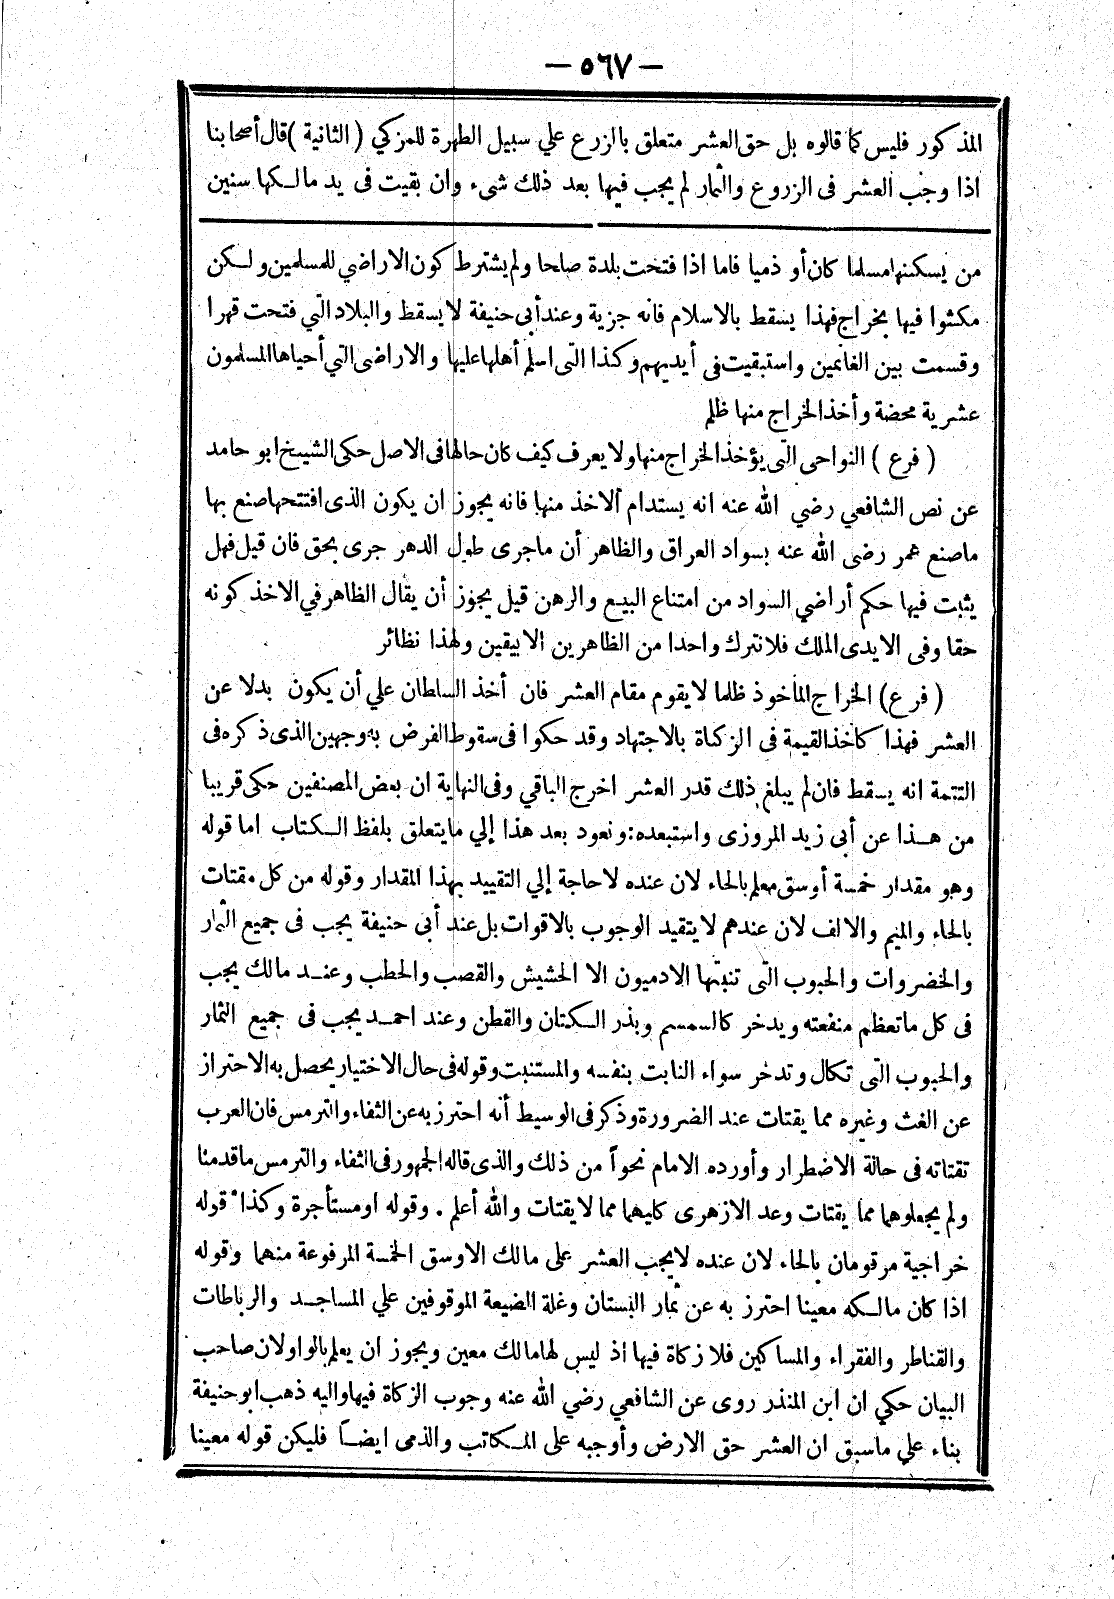 — ٥٦٧ —
المذكور فليس كما قالوه بل حق العشر متعلق بالزرع علي سبيل الطهرة للمزكي ( الثانية ) قال أصحابنا
اذا وجب العشر فى الزروع والثمار لم يجب فيها بعد ذلك شىء وان بقيت فى يد مالكها سنين
من يسكنها مسلما كان أو ذميا فاما اذا فتحت بلدة صلحا ولم يشترط كون الاراضي للمسلمين ولكن
مكثوا فيها بخراج فهذا يسقط بالاسلام فانه جزية وعند أبى حنيفة لا يسقط والبلاد التي فتحت قهرا
وقسمت بين الغانمين واستبقيت فى أيديهم وكذا التى اسلم أهلها عليها والاراضى التي أحياها المسلمون
عشرية محضة وأخذ الخراج منها ظلم
( فرع ) النواحى التى يؤخذ الخراج منها ولا يعرف كيف كان حالها فى الاصل حكى الشيخ ابو حامد
عن نص الشافعي رضي الله عنه انه يستدام الاخذ منها فانه يجوز ان يكون الذى افتتحها صنع بها
ما صنع عمر رضى الله عنه بسواد العراق والظاهر أن ما جرى طول الدهر جرى بحق فان قيل فهل
يثبت فيها حكم أراضي السواد من امتناع البيع والرهن قيل يجوز أن يقال الظاهر في الاخذ كونه
حقا وفى الايدى الملك فلا نترك واحدا من الظاهرين الا بيقين ولهذا نظائر
( فرع ) الخراج المأخوذ ظلما لا يقوم مقام العشر فان أخذ السلطان علي أن يكون بدلا عن
العشر فهذا كاخذ القيمة فى الزكاة بالاجتهاد وقد حكوا فى سقوط الفرض به وجهين الذى ذكره فى
التتمة انه يسقط فان لم يبلغ ذلك قدر العشر اخرج الباقي وفى النهاية ان بعض المصنفين حكى قريبا
من هذا عن أبى زيد المروزى واستبعده: ونعود بعد هذا إلي ما يتعلق بلفظ الكتاب اما قوله
وهو مقدار خمسة أوسق معلم بالحاء لان عنده لا حاجة إلي التقييد بهذا المقدار وقوله من كل مقتات
بالحاء والميم والالف لان عندهم لا يتقيد الوجوب بالاقوات بل عند أبي حنيفة يجب فى جميع الثمار
والخضروات والحبوب التى تنبتها الادميون الا الحشيش والقصب والحطب وعند مالك يجب
فى كل ما تعظم منفعته ويدخر كالسمسم وبذر الكتان والقطن وعند احمد يجب فى جميع الثمار
والحبوب التى تكال وتدخر سواء النابت بنفسه والمستنبت وقوله فى حال الاختيار يحصل به الاحتراز
عن الغث وغيره مما يقتات عند الضرورة وذكر فى الوسيط أنه احترز به عن الثفاء والترمس فان العرب
تقتاته فى حالة الاضطرار وأورده الامام نحواً من ذلك والذى قاله الجمهور فى الثفاء والترمس ما قدمنا
ولم يجعلوهما مما يقتات وعد الازهرى كليهما مما لا يقتات والله أعلم . وقوله او مستأجرة وكذا قوله
خراجية مرقومان بالحاء لان عنده لا يجب العشر على مالك الاوسق الخمسة المرفوعة منهما وقوله
اذا كان مالكه معينا احترز به عن ثمار البستان وغلة الضيعة الموقوفين علي المساجد والرباطات
والقناطر والفقراء والمساكين فلا زكاة فيها اذ ليس لها مالك معين ويجوز ان يعلم بالواو لان صاحب
البيان حكي ان ابن المنذر روى عن الشافعي رضي الله عنه وجوب الزكاة فيها واليه ذهب ابو حنيفة
بناء علي ما سبق ان العشر حق الارض وأوجبه على المكاتب والذمى ايضاً فليكن قوله معينا